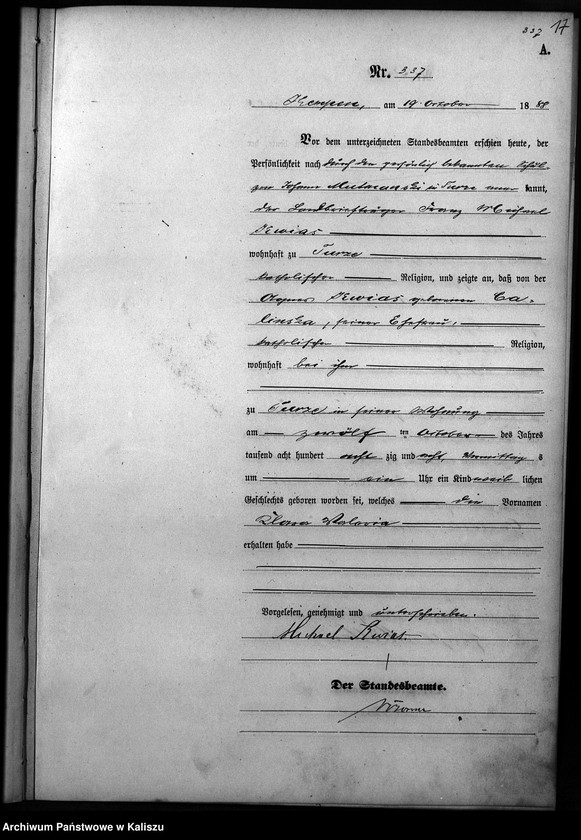 337 17
A.
Nr. 337
Kempen, am 19 October 1888
Vor dem unterzeneten Standesbeamten erschien heute, der
Persönlichkeit nach durch den persönlich bekannten
Johann zu Turze kannt,
der Landbriefträger Franz Michael
Kwias
wohnhaft zu Turze
katholischer Religion, und zeigte an, daß von der
Agnes Kwias geborenen Ca-
linska, seiner Ehefrau,
katholischer Religion,
wohnhaft bei ihm
zu Turze in seiner Wohnung
am zwölf ten October des Jahres
tausend acht hundert acht zig und acht, Vormittag s
um ein Uhr ein Kind weib lichen
Geschlechts geboren worden sei, welches die Vornamen
Clara Valeria
erhalten habe
Vorgelesen, genehmigt und unterschrieben.
Michael Kwias.
Der Standesbeamte.
Archiwum Państwowe w Kaliszu